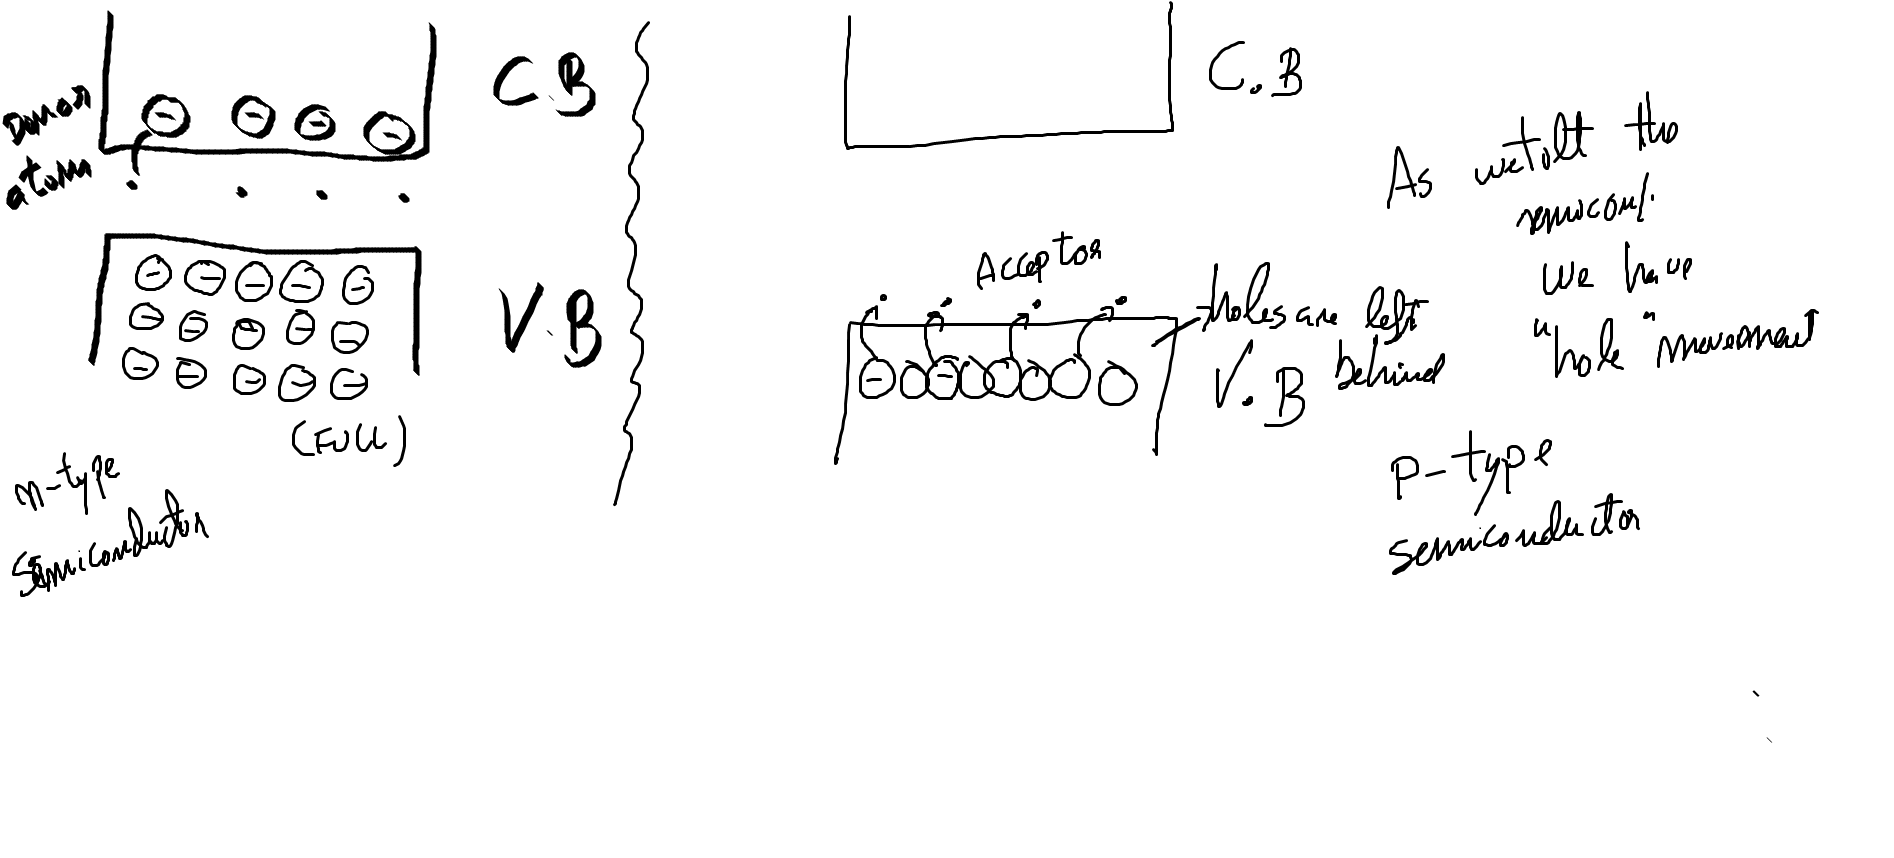 Donor
atom
C.B
V.B
(FULL)
n-type
Semiconductor
C.B
Acceptor
holes are left
behind
V.B
As we tilt the
semicon/.
we have
"hole" movement
P-type
semiconductor